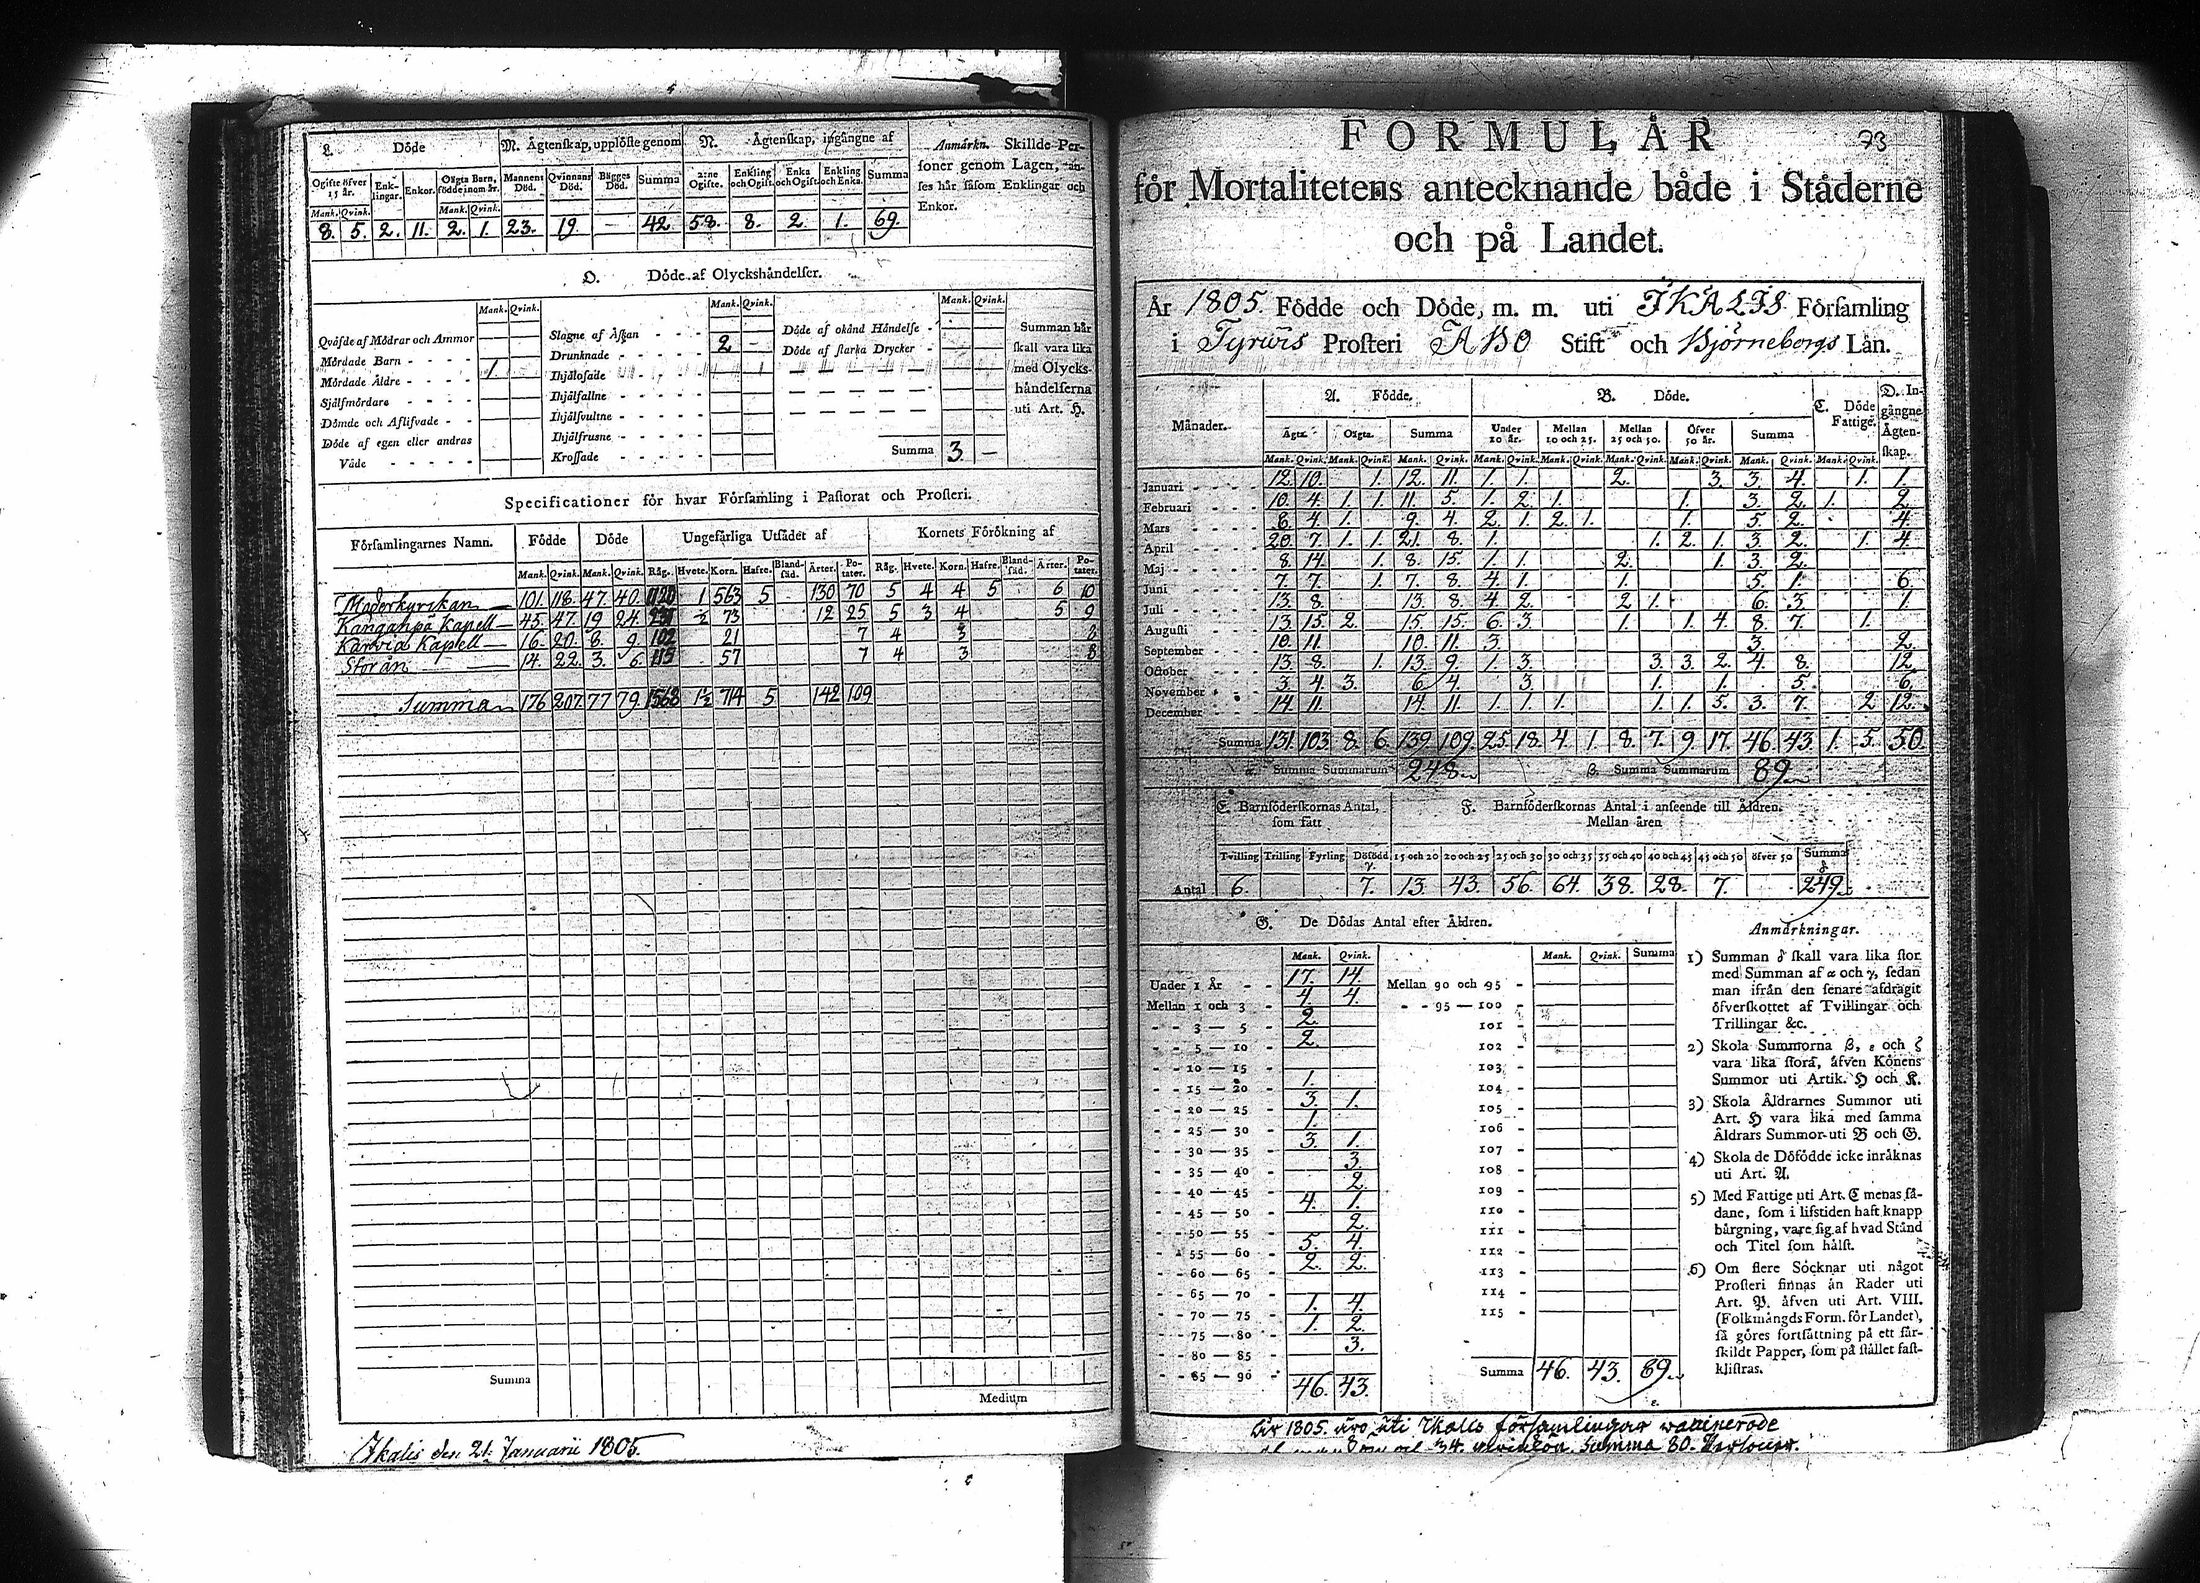 L. Döde
M. Ägtenskap, upplöste genom
N. Ägtenskap, ingångne af
Anmärkn. Skillde Per-
soner genom Lagen, an-
ses här såsom Enklingar och
Enkor.
Ogifte öfver 15 år. Enk-lingar. Enkor. Oägta Barn, födde inom år. Mannens Död. Qvinnans Död. Bägges Död. Summa 2:ne Ogifte. Enkling och Ogift. Enka och Ogift. Enkling och Enka. Summa
Mank. Qvink. Mank. Qvink.
8. 5. 2. 11. 2. 1. 23. 19. — 42. 58. 8. 2. 1. 69.
O. Döde af Olyckshändelser.
Mank. Qvink. Mank. Qvink. Mank. Qvink.
Qväfde af Mödrar och Ammor
Mördade Barn - - - - 1.
Mördade Äldre - - - -
Själfmördare - - - -
Dömde och Aflifvade - -
Döde af egen eller andras
Våde - - - - -
Slagne af Åskan - - -
Drunknade - - - - - 2 —
Ihjälosade
Ihjälfallne - - - - -
Ihjälsvultne - - - - -
Ihjälfrusne - - - - -
Krossade - - - - -
Döde af okänd Händelse -
Döde af starka Drycker -
Summa 3. —
Summan här
skall vara lika
med Olycks-
händelserna
uti Art. H.
Specificationer för hvar Församling i Pastorat och Prosteri.
Församlingarnes Namn. Födde Döde Ungefärliga Utsädet af Kornets Förökning af
Mank. Qvink. Mank. Qvink. Råg. Hvete. Korn. Hafre. Bland-säd. Ärter. Po-tater. Råg. Hvete. Korn. Hafre. Bland-säd. Ärter. Po-tater.
Moderkyrckan 101. 118. 47. 40. 1120 1 563 5 130 70 5 4 4 5 6 10
Kangahpä Kapell 45. 47. 19 24. ½ 73 12 25 5 3 4 5 9
Karvia Kapell 16. 20. 8. 9. 102 21 7 4 3 8
Storån 14. 22. 3. 6. 115 57 7 4 3 8
Summa 176 207. 77 79. 1568 1½ 714 5 142 109
Summa
Medium
Ikalis den 21. Januarii 1805.
73
FORMULÄR
för Mortalitetens antecknande både i Städerne
och på Landet.
År 1805. Födde och Döde, m. m. uti IKALIS Församling
i Tyrwis Prosteri ÅBO Stift och Björneborgs Län.
Månader. A. Födde. B. Döde. C. Döde Fattige. D. In-gångne Ägten-skap.
Ägta. Oägta. Summa Under 10 år. Mellan 10 och 25. Mellan 25 och 50. Öfver 50 år. Summa
Mank. Qvink. Mank. Qvink. Mank. Qvink. Mank. Qvink. Mank. Qvink. Mank. Qvink. Mank. Qvink. Mank. Qvink. Mank. Qvink.
Januari - - - - 12. 10. 1. 12. 11. 1. 1. 2. 3. 3. 4. 1. 1.
Februari - - - 10. 4. 1. 1. 11. 5. 1. 2. 1. 1. 3. 2. 1. 2.
Mars - - - - 8. 4. 1. 9. 4. 2. 1. 2. 1. 1. 5. 2. 4.
April - - - - 20. 7. 1. 1. 21. 8. 1. 1. 2. 1. 3. 2. 1. 4.
Maj - - - - 8. 14. 1. 8. 15. 1. 1. 2. 1. 3. 2.
Juni - - - - 7. 7. 1. 7. 8. 4. 1. 1. 5. 1. 6.
Juli - - - - 13. 8. 13. 8. 4. 2. 2. 1. 6. 3. 1.
Augusti - - - 13. 15. 2. 15. 15. 6. 3. 1. 1. 4. 8. 7. 1.
September - - - 10. 11. 10. 11. 3. 3. 2.
October - - - 13. 8. 1. 13. 9. 1. 3. 3. 3. 2. 4. 8. 12.
November - - 3. 4. 3. 6. 4. 3. 1. 1. 5. 6.
December - - 14. 11. 14. 11. 1. 1. 1. 1. 1. 5. 3. 7. 2. 12.
Summa 131. 103. 8. 6. 139. 109. 25. 18. 4. 1. 8. 7. 9. 17. 46. 43. 1. 5. 50.
α. Summa Summarum 248. β. Summa Summarum 89.
E. Barnföderskornas Antal, som fått
F. Barnföderskornas Antal i anseende till Åldren.
Mellan åren
Tvilling Trilling Fyrling Dödfödd. γ. 15 och 20 20 och 25 25 och 30 30 och 35 35 och 40 40 och 45 45 och 50 öfver 50 Summa δ
Antal 6. 7. 13. 43. 56. 64. 38. 28. 7. 249.
G. De Dödas Antal efter Åldren.
Mank. Qvink. Mank. Qvink. Summa
Under 1 År - - 17. 14.
Mellan 1 och 3 - 4. 4.
- - 3 — 5 - 2.
- - 5 — 10 - 2.
- - 10 — 15 -
- - 15 — 20 - 1.
- - 20 — 25 - 3. 1.
- - 25 — 30 - 1.
- - 30 — 35 - 3. 1.
- - 35 — 40 - 3.
- - 40 — 45 - 2.
- - 45 — 50 - 4. 1.
- - 50 — 55 - 2.
- - 55 — 60 - 5. 4.
- - 60 — 65 - 2. 2.
- - 65 — 70 -
- - 70 — 75 - 1. 4.
- - 75 — 80 - 1. 2.
- - 80 — 85 - 3.
- - 85 — 90 -
46. 43.
Mellan 90 och 95 -
- - 95 — 100 -
101 -
102 -
103 -
104 -
105 -
106 -
107 -
108 -
109 -
110 -
111 -
112 -
113 -
114 -
115 -
Summa 46. 43. 89.
ε.
Anmärkningar.
1) Summan δ skall vara lika stor
med Summan af α och γ, sedan
man ifrån den senare afdragit
öfverskottet af Tvillingar och
Trillingar &c.
2) Skola Summorna β, ε och ζ
vara lika stora, äfven Könens
Summor uti Artik. H och K.
3) Skola Åldrarnes Summor uti
Art. H vara lika med samma
Åldrars Summor uti B och G.
4) Skola de Döfödde icke inräknas
uti Art. A.
5) Med Fattige uti Art. C menas så-
dane, som i lifstiden haft knapp
bärgning, vare sig af hvad Stånd
och Titel som hälst.
6) Om flere Socknar uti något
Prosteri finnas än Rader uti
Art. P. äfven uti Art. VIII.
(Folkmängds Form. för Landet),
så göres fortsättning på ett sär-
skildt Papper, som på stället fast-
klistras.
År 1805. äro uti Ikalis församlingar waccinerade
34. qvinkön Summa 80. Personer.